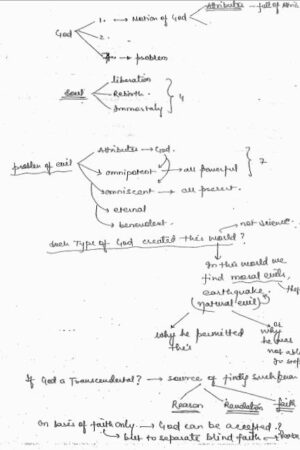 Attributes – full of
1. → Notion of God
God
2.
→ problem
liberation
Soul Rebirth. 4
Immortaly
Attributes → God.
problem of evil omnipotent → all powerful 7
omniscent → all present.
eternal
benevolent.
not science
Such Type of God created this world?
In this world we
find moral evils,
earthquake.
(natural evil)
why he permitted
this
or
why
he was
not able
If God a Transcendental? → source of
Reason Revolution faith
On basis of faith only → God can be accepted?
but to separate blind faith →